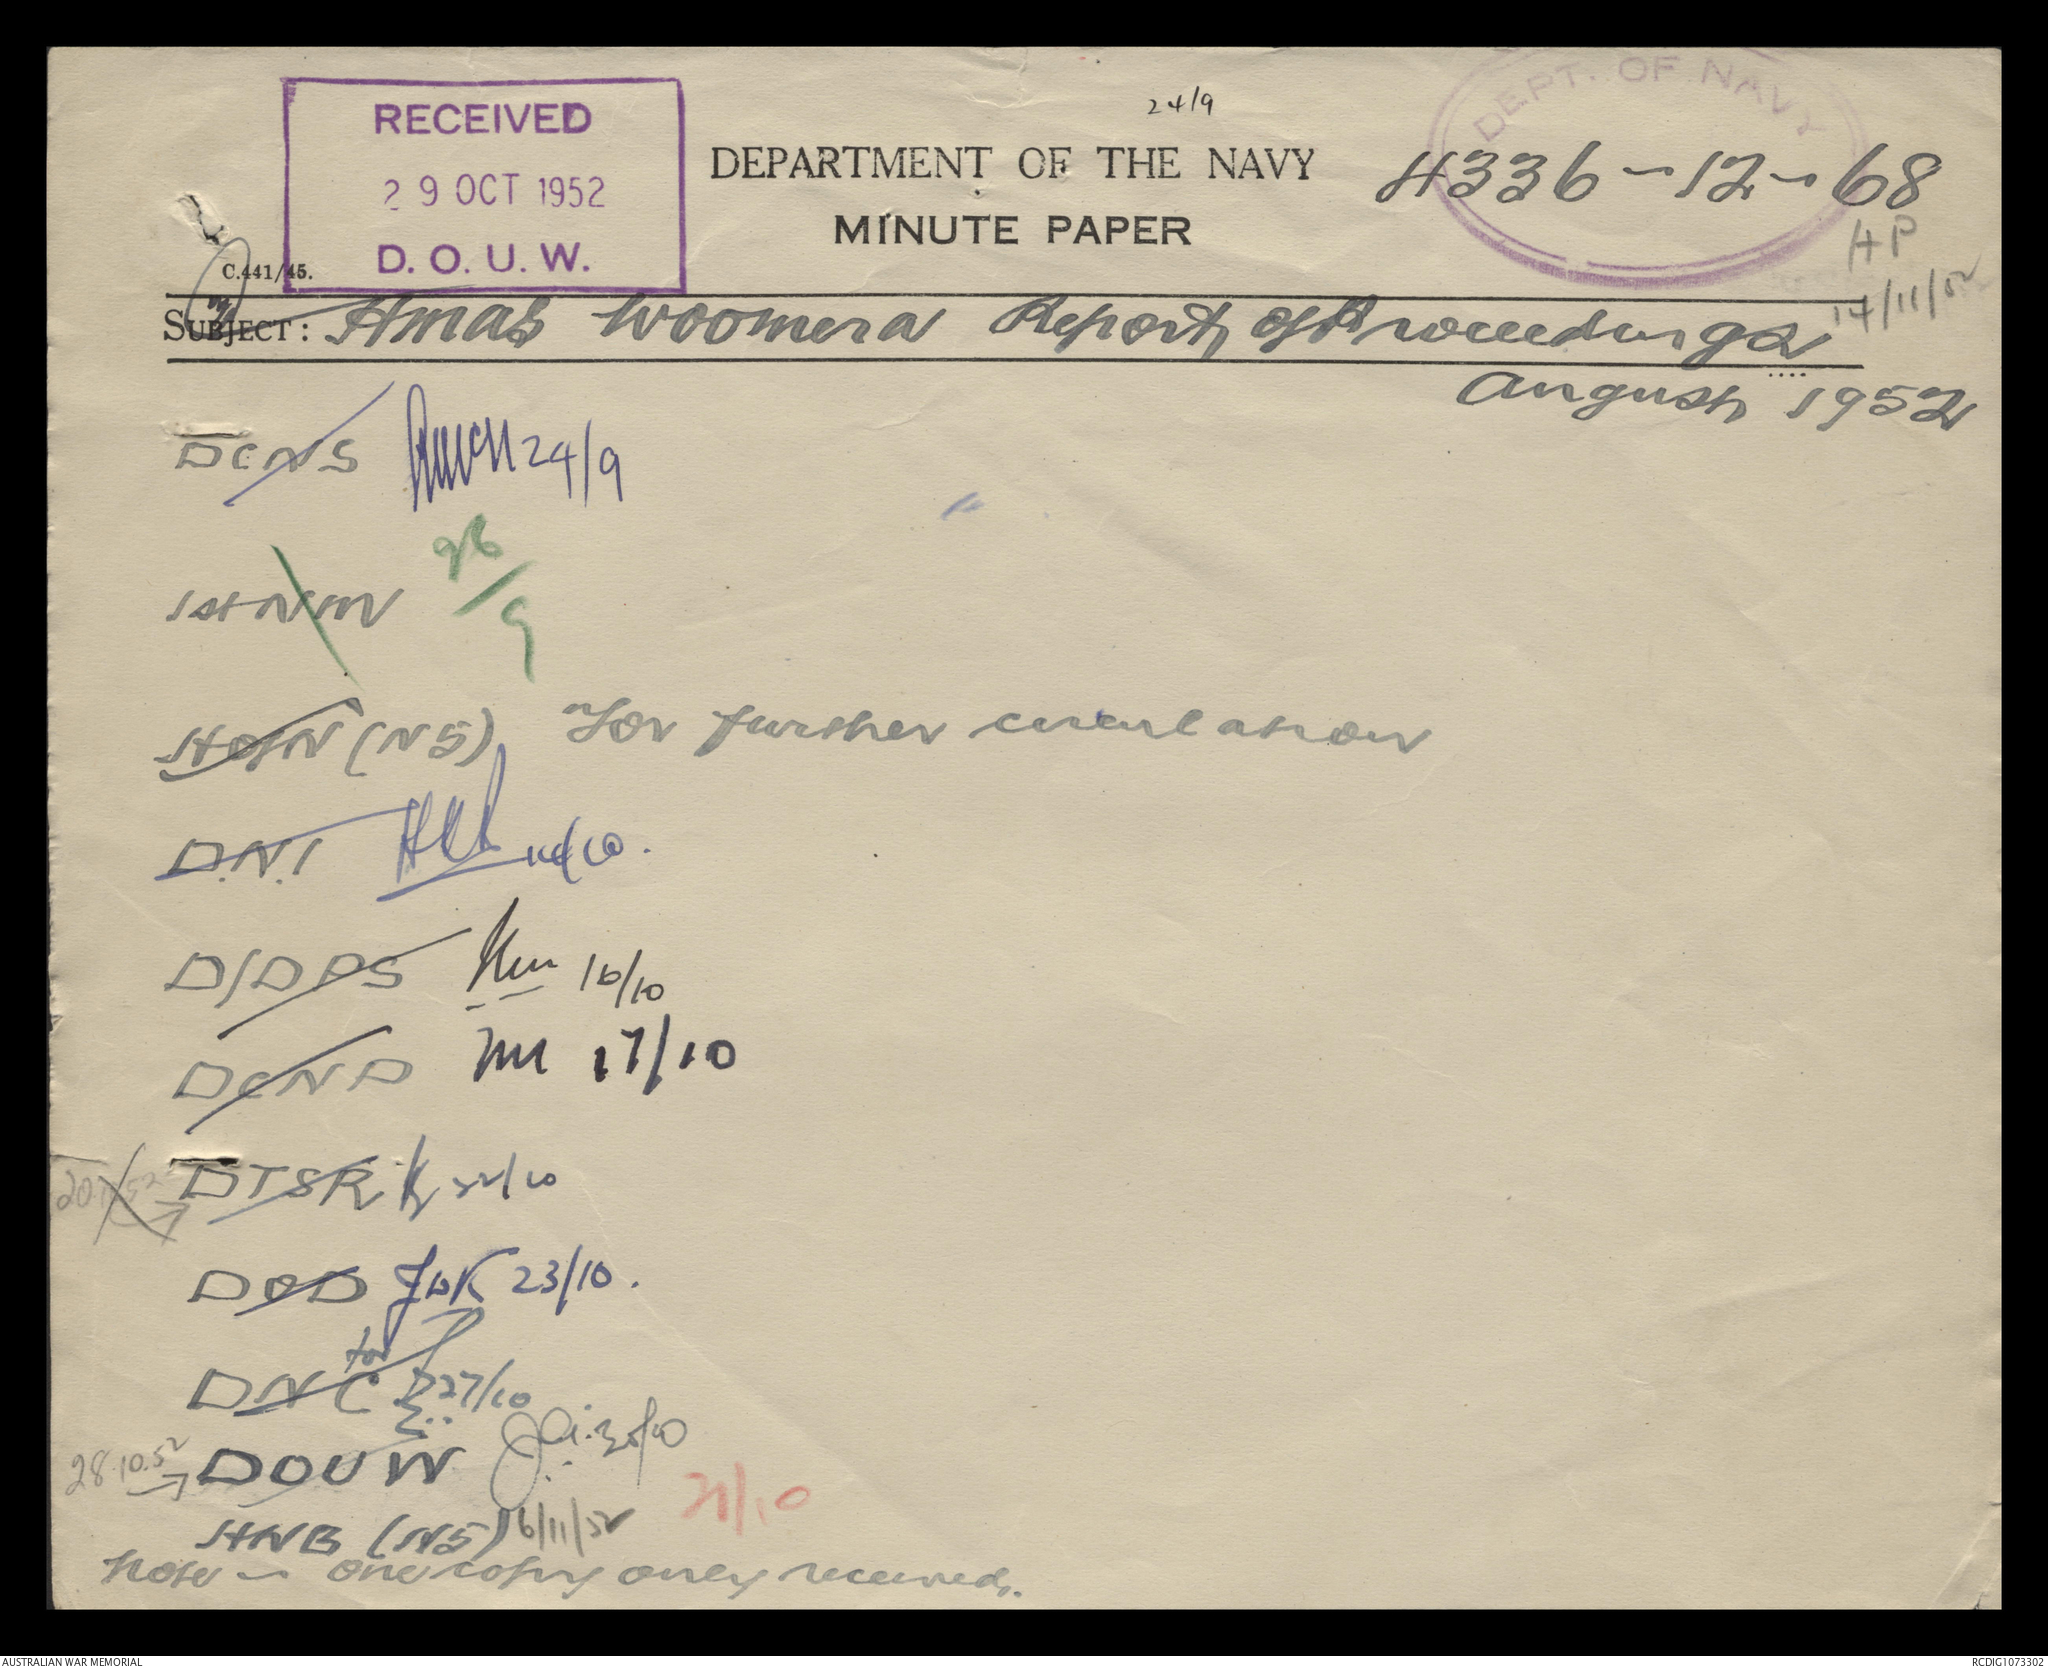 RECEIVED
29 OCT 1952
D. O. U. W.
24/9
DEPARTMENT OF THE NAVY
MINUTE PAPER
DEPT. OF NAVY
4336-12-68
HP
14/11/52
C.441/45.
SUBJECT: HMAS Woomera Report of Proceedings
August 1952
DCNS 24/9
26/9
(N5) for further circulation
D.N.I /10.
D/DPS 16/10
17/10
DTSR 22/10
DOD 23/10.
for
DNC 27/10
28.10.52 → DOUW
31/10
HNB (N5) 6/11/52
Note - one copy only received.
AUSTRALIAN WAR MEMORIAL
RCDIG1073302